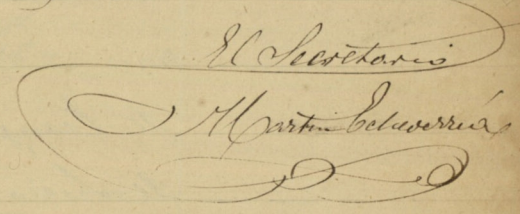 El Secretario
Martin Echeverría